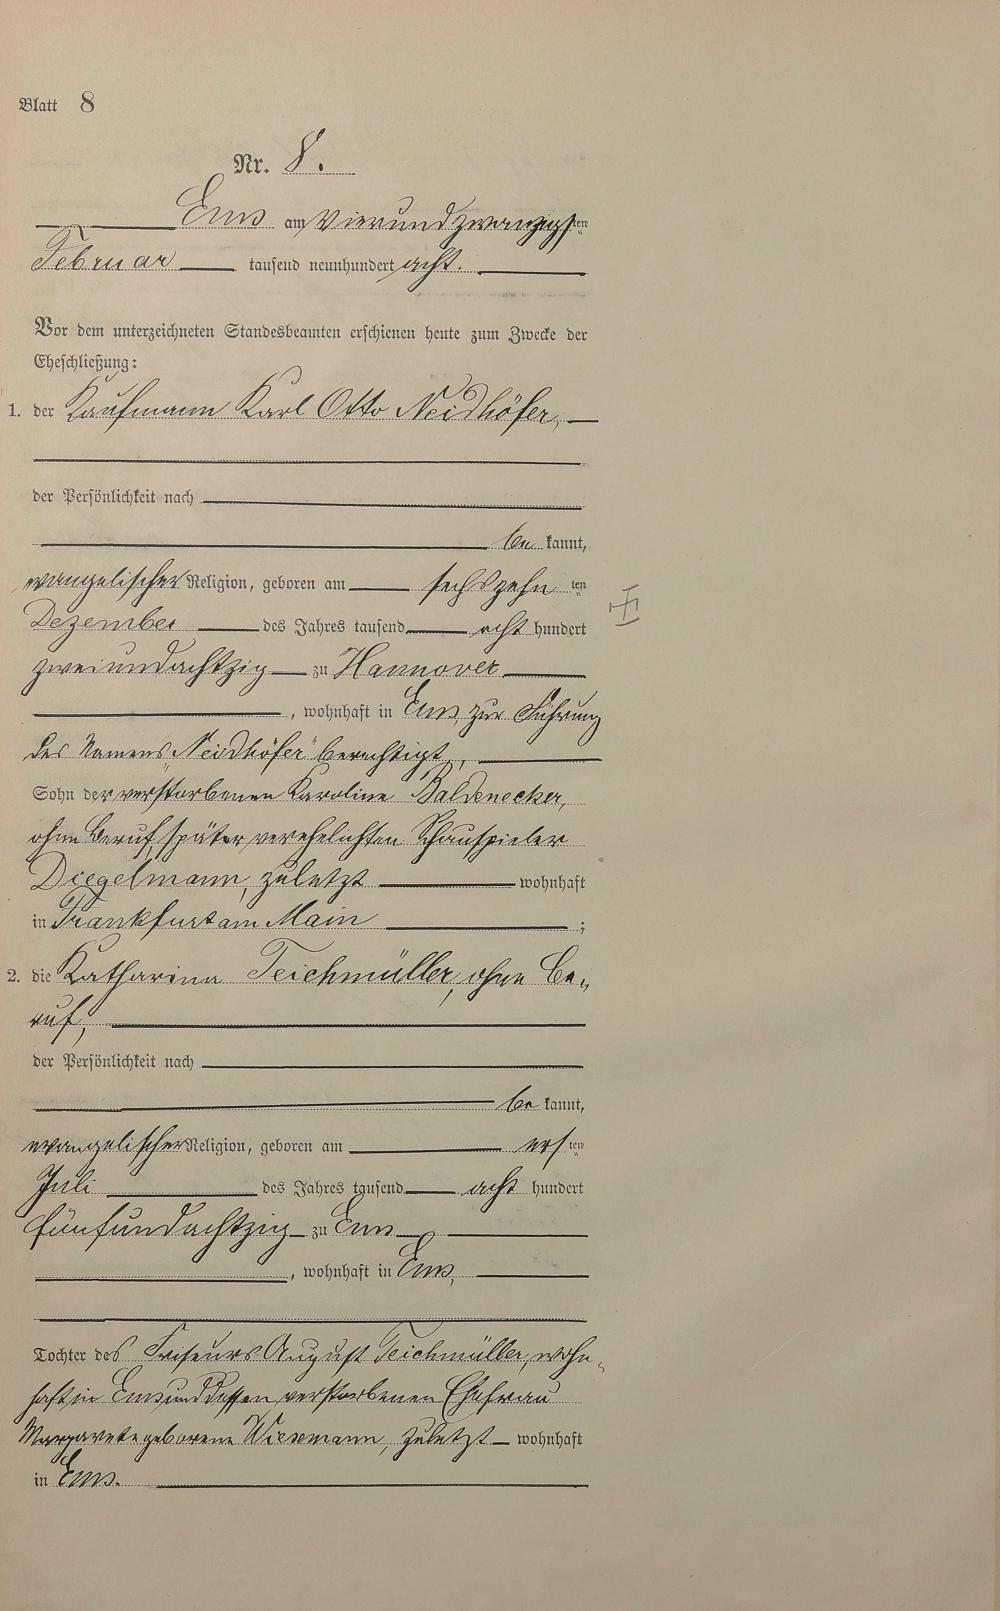 Blatt 8
Nr. 8.
Ems am vierundzwanzigsten
Februar tausend neunhundert acht.
Vor dem unterzeichneten Standesbeamten erschienen heute zum Zwecke der
Eheschließung:
1. der Kaufmann Karl Otto Neidhöfer,
der Persönlichkeit nach
be kannt,
evangelischer Religion, geboren am sechszehn ten
Dezember des Jahres tausend acht hundert
zweiundachtzig zu Hannover
, wohnhaft in Ems, zur Führung
des Namens „Neidhöfer" berechtigt,
Sohn der verstorbenen Karoline Baldenecker,
ohne Beruf, später verehelichten Schauspieler
Diegelmann, zuletzt wohnhaft
in Frankfurt am Main ;
2. die Katharina Teichmüller, ohne Be-
ruf,
der Persönlichkeit nach
be kannt,
evangelischer Religion, geboren am ers ten
Juli des Jahres tausend acht hundert
fünfundachtzig zu Ems
, wohnhaft in Ems,
Tochter des Friseurs August Teichmüller, wohn-
haft in Ems und dessen verstorbenen Ehefrau
Margarete geborene Wiesemann, zuletzt wohnhaft
in Ems.